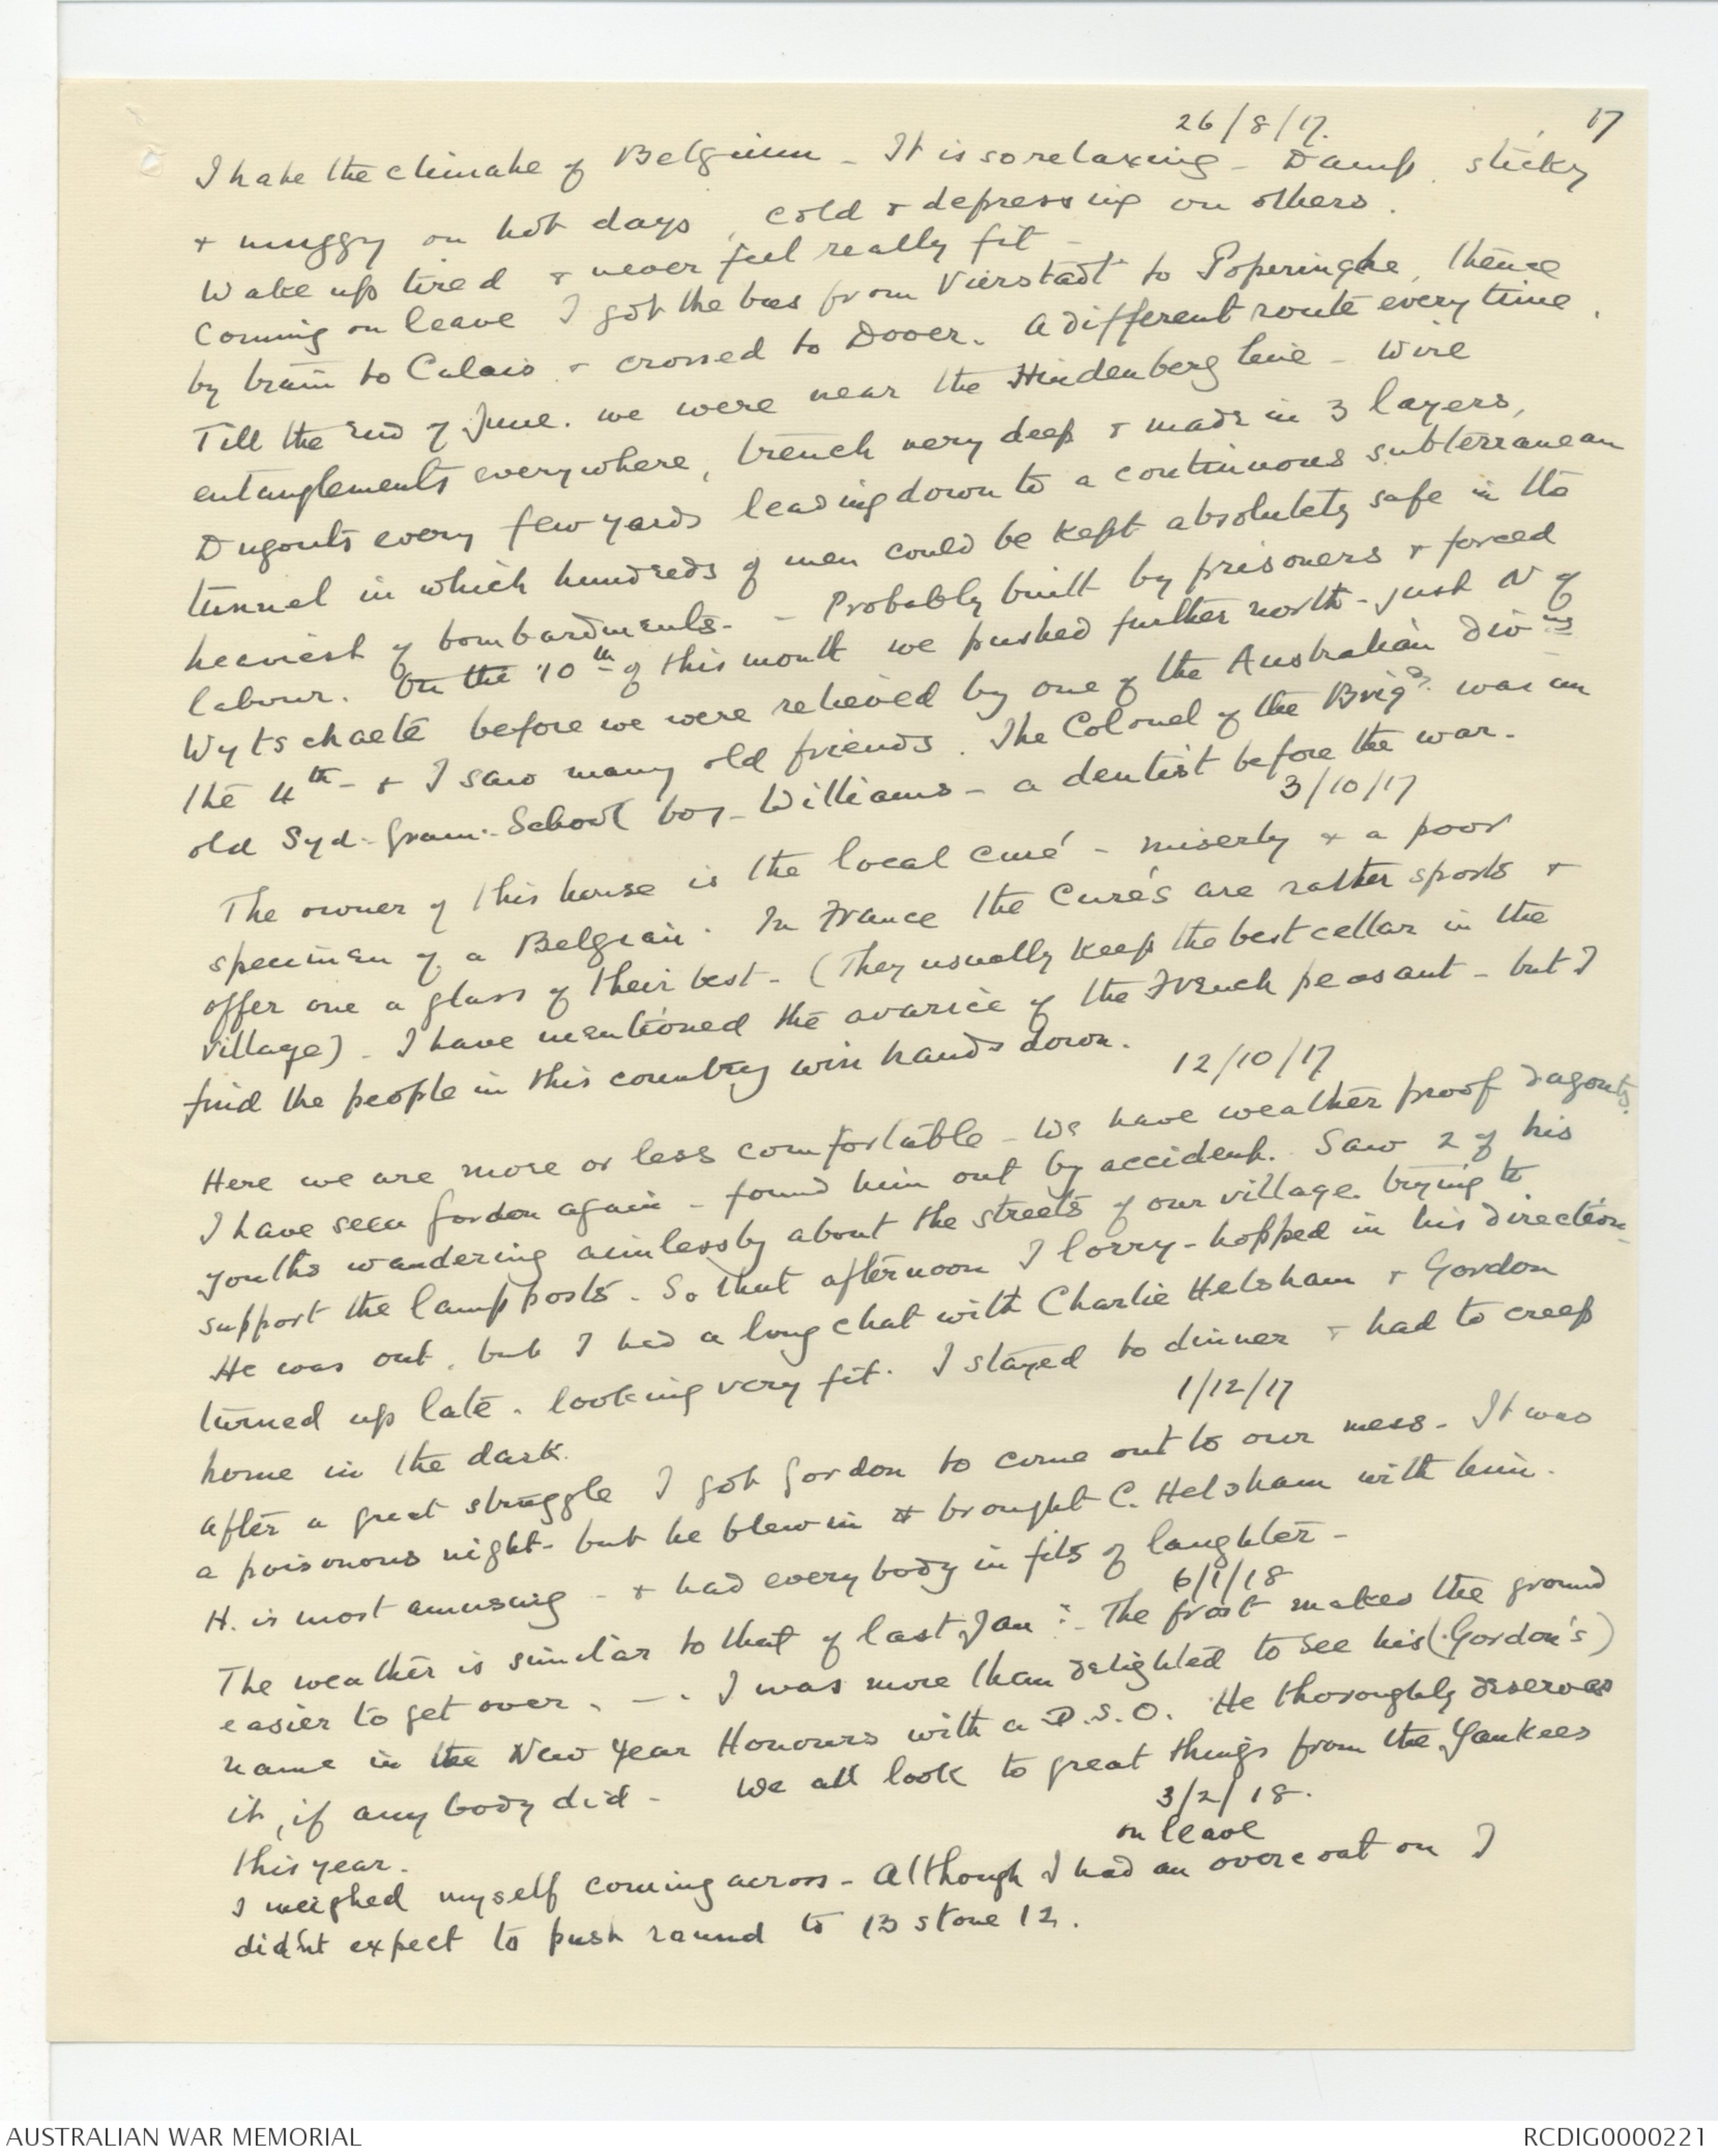 17
26/8/17.
I hate the climate of Belgium - It is so relaxing - Damp, sticky
& muggy on hot days, cold & depressing on others.
Wake up tired & never feel really fit -
Coming on leave I got the bus from Vierstadt to Poperinghe, thence
by train to Calais & crossed to Dover. A different route every time.
Till the end of June. we were near the Hindenberg line - Wire
entanglements everywhere, trench very deep & made in 3 layers,
Dugouts every few yards leading down to a continuous subterranean
tunnel in which hundreds of men could be kept absolutely safe in the
heaviest of bombardments. - Probably built by prisoners & forced
labour. On the 10th of this month we pushed further north - just N of
Wytschaete before we were relieved by one of the Australian Divns
the 4th - & I saw many old friends. The Colonel of the Brigd. was an
old Syd. Gram. School boy - Williams - a dentist before the war.
3/10/17
The owner of this house is the local curé - miserly & a poor
specimen of a Belgian. In France the Curés are rather sports &
offer one a glass of their best - (They usually keep the best cellar in the
village). I have mentioned the avarice of the French peasant - but I
find the people in this country win hands down.
12/10/17
Here we are more or less comfortable - We have weather proof dugouts.
I have seen Gordon again - found him out by accident. Saw 2 of his
youths wandering aimlessly about the streets of our village. trying to
support the lamp posts. So that afternoon I lorry-hopped in his direction.
He was out, but I had a long chat with Charlie Helsham & Gordon
turned up late. looking very fit. I stayed to dinner & had to creep
home in the dark.
1/12/17
After a great struggle I got Gordon to come out to our mess. It was
a poisonous night - but he blew in & brought C. Helsham with him.
H. is most amusing - & had everybody in fits of laughter -
6/1/18
The weather is similar to that of last Jan: - The frost makes the ground
easier to get over. - . I was more than delighted to see his (Gordon's)
name in the New Year Honours with a D.S.O. He thoroughly deserves
it, if any body did - We all look to great things from the Yankees
this year.
3/2/18.
on leave
I weighed myself coming across - Although I had an overcoat on I
didn't expect to push round to 13 stone 12.
AUSTRALIAN WAR MEMORIAL
RCDIG0000221